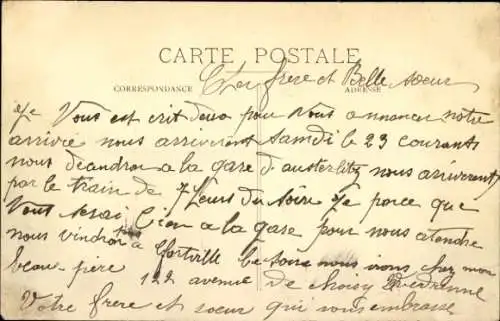 CARTE POSTALE
CORRESPONDANCE
ADRESSE
Cher frere et Belle soeur
je Vous est crit deux pour Vous annoncer notre
arrivée nous arriveront Samdi le 23 courants
nous décendron a la gare d'austerlitz nous arriverent
par le train de 7 heurs du soire je porce que
Vous serai bien a la gare pour nous atendre
nous vindron a Alfortville le soire nous irons chez mon
beau-père 122 avenue de choisy
Votre frere et soeur qui vous embrasse